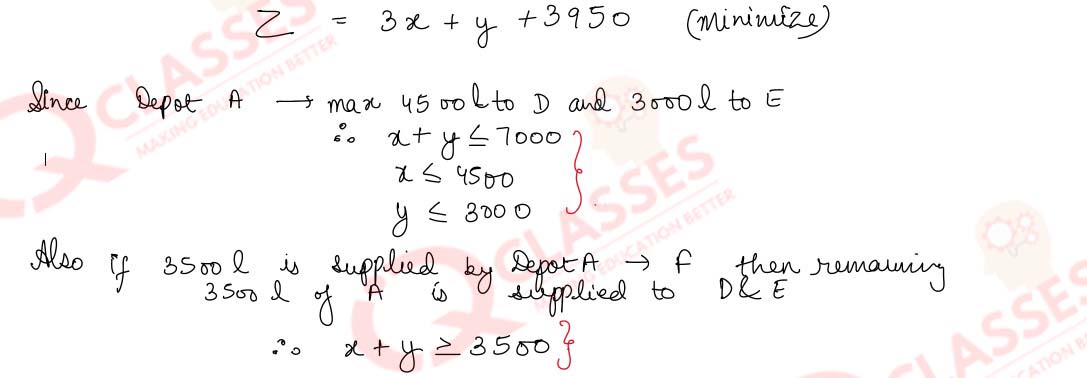 Z = 3x + y + 3950 (Minimize)
Since Depot A → max 4500 l to D and 3000 l to E
∴ x + y ≤ 7000
x ≤ 4500
y ≤ 3000
Also if 3500 l is supplied by Depot A → F then remaining
3500 l of A is supplied to D & E
∴ x + y ≥ 3500
Q CLASSES
MAKING EDUCATION BETTER
Q CLASSES
MAKING EDUCATION BETTER
CLASSES